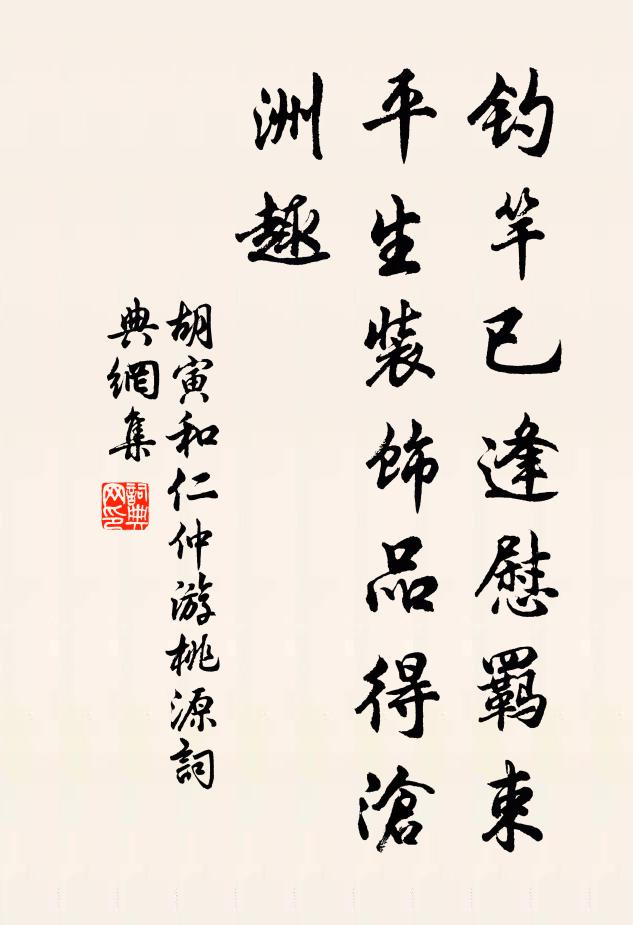 钓竿已逢慰羁束
平生装饰品得沧
洲趣
胡寅和仁仲游桃源詞
典網集
詞典网印